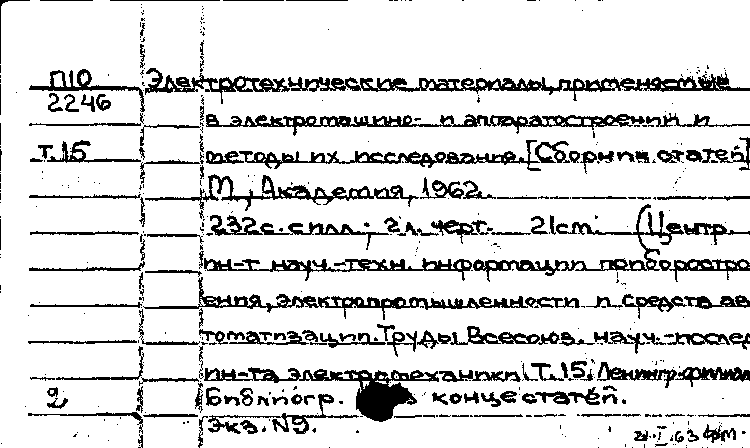 П10 Электротехнические материалы, применяемые
2246
в электромашино- и аппаратостроении и
Т.15 методы их исследования. [Сборник статей]
М., Академия, 1962.
232с. с илл.; 2л. черт. 21cm. (Центр.
ин-т науч.-техн. информации приборостро
ения, электропромышленности и средств ав
томатизации. Труды Всесоюз. науч.-исслед
ин-та электромеханики. Т.15. Ленингр. филиал
2 Библиогр. в конце статей.
Экз. №9.
21.I.63